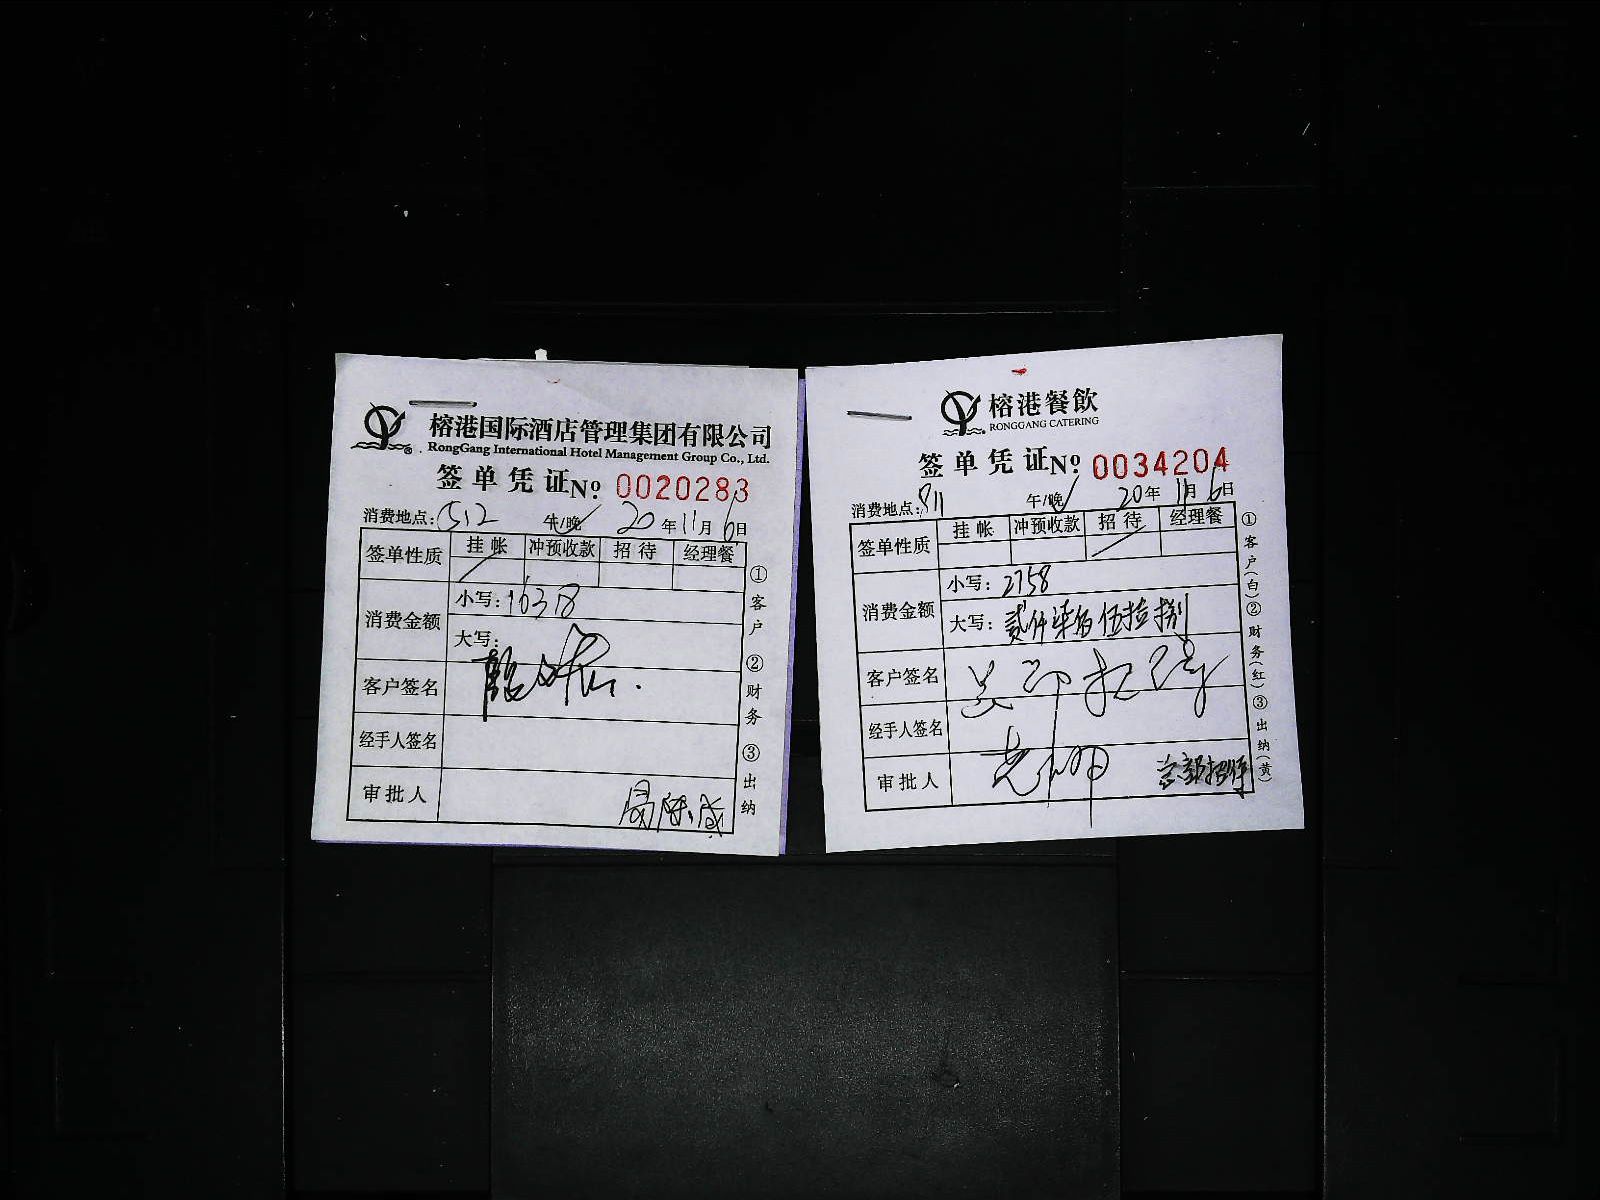 榕港国际酒店管理集团有限公司
RongGang International Hotel Management Group Co., Ltd.
签单凭证 No 0020283
消费地点: 512 午/晚 20年11月6日
签单性质 挂帐 冲预收款 招待 经理餐
消费金额 小写: 16378
大写:
客户签名
经手人签名
审批人
①客户 ②财务 ③出纳
榕港餐飲
RONGGANG CATERING
签单凭证 No 0034204
消费地点: 811 午/晚 20年11月6日
签单性质 挂帐 冲预收款 招待 经理餐
消费金额 小写: 2758
大写: 贰仟柒佰伍拾捌
客户签名
经手人签名
审批人
①客户(白)②财务(红)③出纳(黄)